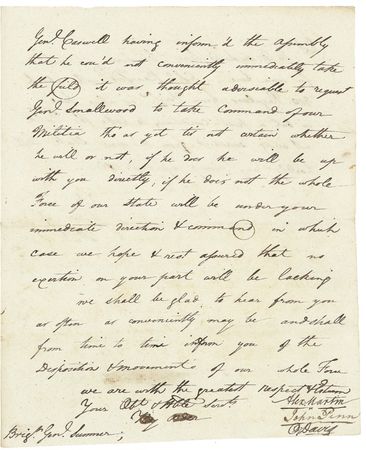 Genl. Caswell having inform'd the Assembly
that he cou'd not conveniently immediately take
the field it was thought adviseable to request
Genl. Smallwood to take Command of our
Militia tho' as yet tis not certain whether
he will or not, if he does he will be up
with you directly, if he does not the whole
Force of our State will be under your
immediate direction & command in which
case we hope & rest assured that no
exertion on your part will be lacking
we shall be glad to hear from you
as often as conveniently may be and shall
from time to time inform you of the
Disposition & movements of our whole Force
we are with the greatest respect & Esteem
Your Obt. & Hble Servts.
Alex Martin
John Penn
O Davis
By order
Brigr. Genl. Sumner;